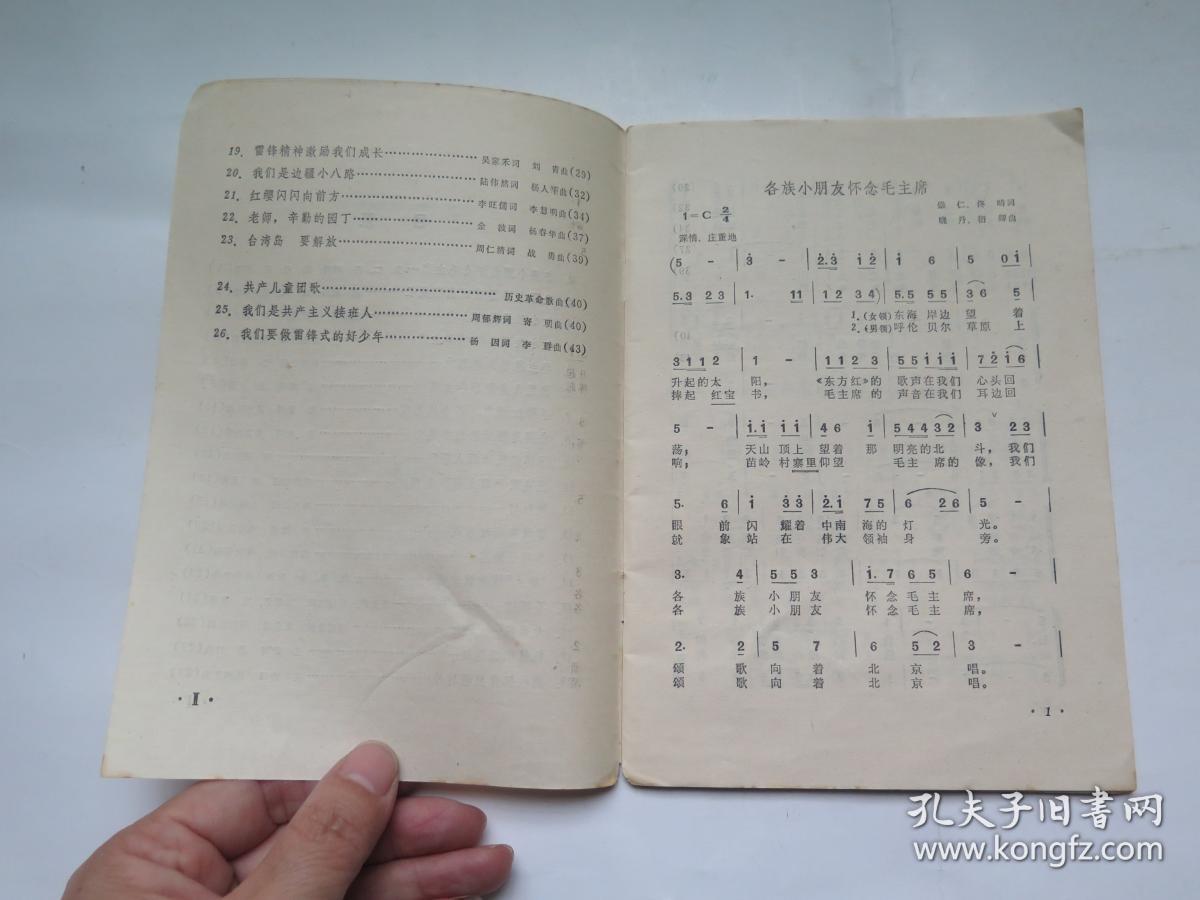 19. 雷锋精神激励我们成长……………………吴家禾词 刘 青曲(29)
20. 我们是边疆小八路……………………陆伟然词 杨人翊曲(32)
21. 红缨闪闪向前方……………………李旺儒词 李慧明曲(34)
22. 老师，辛勤的园丁……………………金 波词 杨春华曲(37)
23. 台湾岛 要解放……………………周仁精词 战 勇曲(39)
24. 共产儿童团歌……………………历史革命歌曲(40)
25. 我们是共产主义接班人……………………周郁辉词 寄 明曲(40)
26. 我们要做雷锋式的好少年……………………杨 因词 李 群曲(43)
· Ⅰ ·
各族小朋友怀念毛主席
1=C 2/4
深情、庄重地
(5 - | 3 - | 2.3 1 2 | 1 6 | 5 0 1 |
5.3 2 3 | 1. 1 1 | 1 2 3 4) | 5.5 5 5 | 3 6 5 |
1.(女领)东海 岸边 望 着
2.(男领)呼伦 贝尔 草原 上
3 1 1 2 | 1 - | 1 1 2 3 | 5 5 1 1 1 | 7 2 1 6 |
升起的太 阳， 《东方红》的 歌声在我们 心头回
捧起 红宝 书， 毛主席的 声音在我们 耳边回
5 - | 1.1 1 1 | 4 6 1 | 5 4 4 3 2 | 3 2 3 |
荡； 天山 顶上 望着 那 明亮的北 斗，我们
响； 苗岭 村寨里仰望 毛主 席的 像，我们
5. 6 | 1 3 3 | 2.1 7 5 | 6 2 6 | 5 - |
眼 前 闪 耀着 中南 海的 灯 光。
就 象 站 在 伟大 领袖 身 旁。
3. 4 | 5 5 3 | 1.7 6 5 | 6 - |
各 族 小 朋 友 怀 念 毛 主 席，
各 族 小 朋 友 怀 念 毛 主 席，
2. 2 | 5 7 | 6 5 2 | 3 - |
颂 歌 向 着 北 京 唱。
颂 歌 向 着 北 京 唱。
· 1 ·
孔夫子旧书网
www.kongfz.com